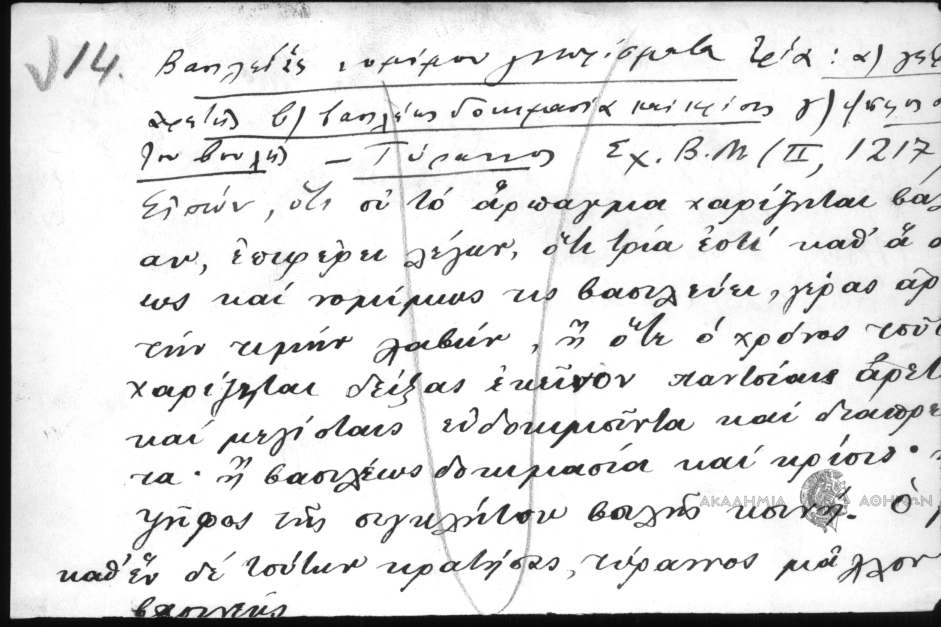 14. Βασιλείας νομίμου γνωρίσματα τρία : α) γέρ
ἀρετῆς β) βασιλέως δοκιμασία καὶ κρίσις γ) ψῆφος σ
του βουλῆς — Τύραννος Σχ. Β.Μ (II, 1217
Εἰπὼν, ὅτι οὐ τὸ ἅρπαγμα χαρίζεται βασ
αν, ἐπιφέρει λέγων, ὅτι τρία ἐστί καθ' ἃ
ως καὶ νομίμως τις βασιλεύει, γέρας ἀρ
τὴν τιμὴν λαβών, ἢ ὅτε ὁ χρόνος τοῦτ
χαρίζεται δείξας ἐκεῖνον παντοίαις ἀρετ
καὶ μεγίσταις εὐδοκιμοῦντα καὶ διαπρε
τα · ἢ βασιλέως δοκιμασία καὶ κρίσις ·
ψῆφος τῆς συγκλήτου βουλῆς κοινή. Ὁ
καθ' ἓν δέ τούτων κρατήσας, τύραννος μᾶλλον
ΑΚΑΔΗΜΙΑ ΑΘΗΝΩΝ